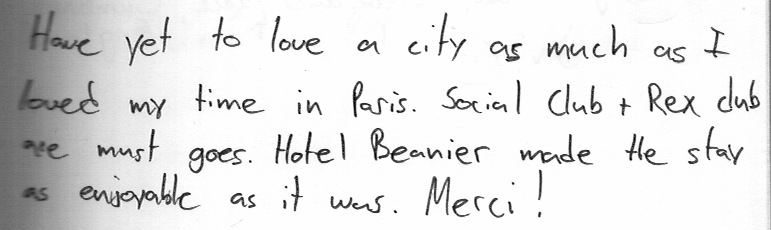 Have yet to love a city as much as I
loved my time in Paris. Social Club + Rex club
are must goes. Hotel Beanier made the stay
as enjoyable as it was. Merci!